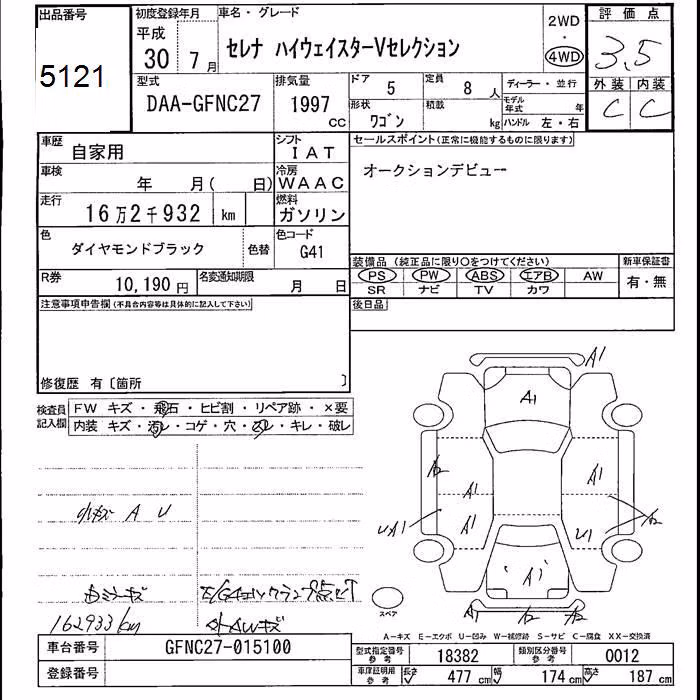 出品番号 初度登録年月 車名・グレード 2WD 評価点
5121 平成 30 7月 セレナ ハイウェイスターVセレクション ・ 4WD 3.5
型式 排気量 ドア 5 定員 8人 ディーラー・並行 外装 内装
DAA-GFNC27 1997 cc 形状 ワゴン 積載 kg モデル年式 年 ハンドル 左・右 C C
車歴 自家用 シフト IAT セールスポイント(正常に機能するものに限ります)
車検 年 月( 日) 冷房 WAAC オークションデビュー
走行 16万2千932 km 燃料 ガソリン
色 ダイヤモンドブラック 色替 色コード G41
装備品 (純正品に限り○をつけてください) 新車保証書
PS PW ABS エアB AW 有・無
SR ナビ TV カワ
R券 10,190円 名変通知期限 月 日
注意事項申告欄(不具合内容等は具体的に記入して下さい) 後日品
修復歴 有〔箇所 〕
検査員記入欄 FW キズ・飛石・ヒビ割・リペア跡・×要
内装 キズ・汚レ・コゲ・穴・スレ・キレ・破レ
A1
A1
A2 A1 A1
UA1 A1 U1 A2
A1
A1 A2 A2
小キズ A U
162933km 外AWキズ
スペア
A-キズ E-エクボ U-凹み W-補修跡 S-サビ C-腐食 XX-交換済
車台番号 GFNC27-015100 型式指定番号 参考 18382 類別区分番号 参考 0012
登録番号 車庫証明用 参考 長さ 477cm 幅 174cm 高さ 187cm